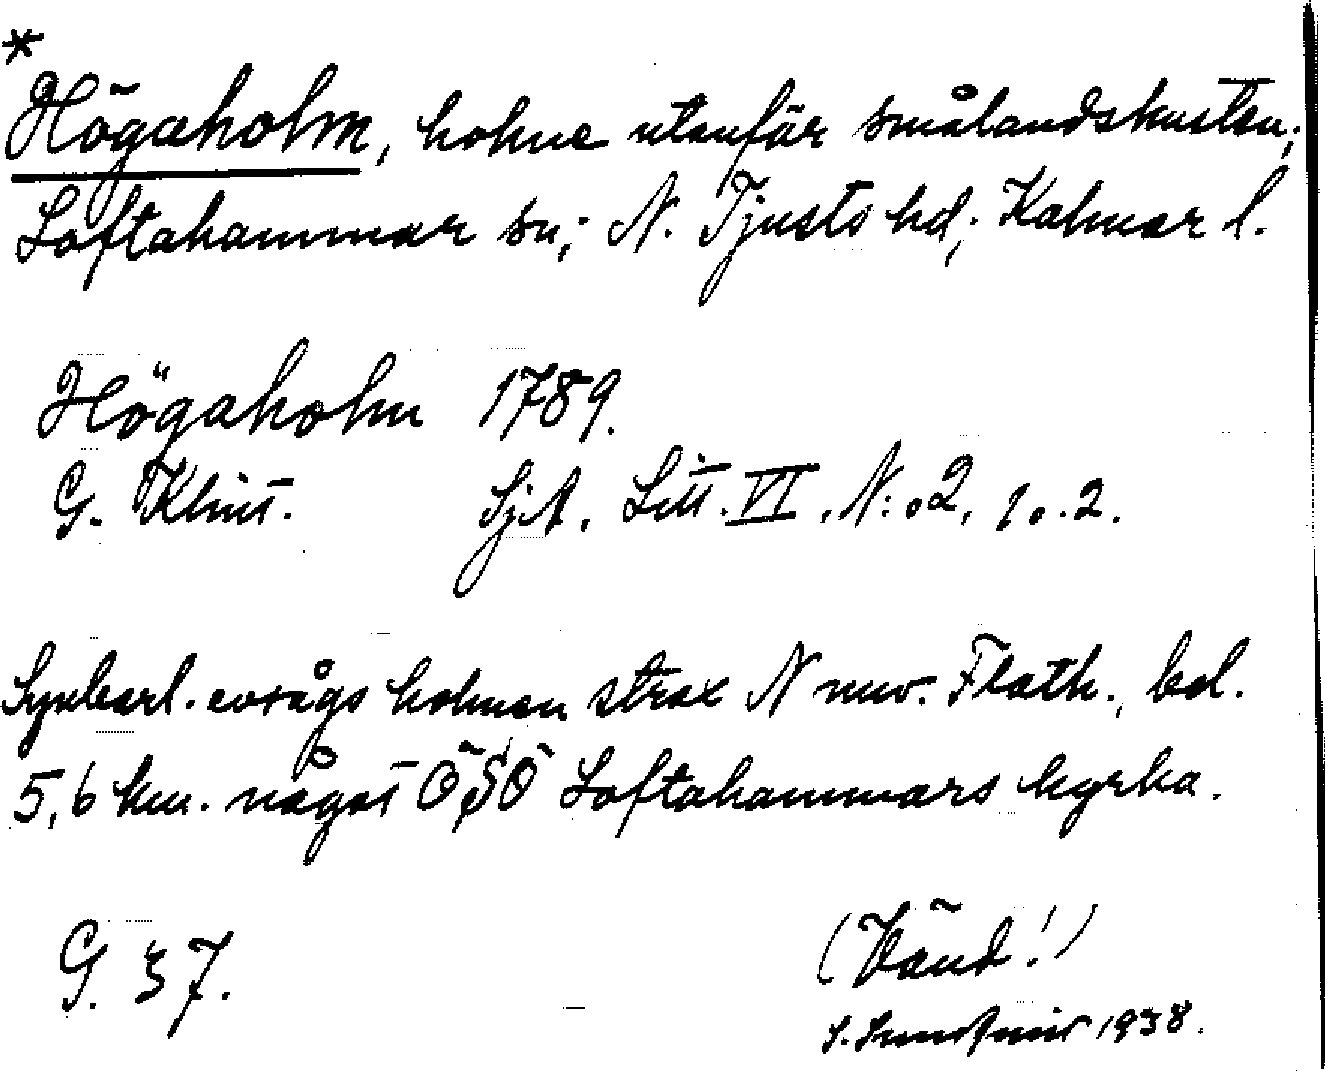 *
Högaholm, holme utanför smålandskusten;
Loftahammar sn; N. Tjusts hd; Kalmar l.
Högaholm 1789.
G. Klint. SjA, Litt. VI. N:o 2, 1 o. 2.
Synbarl. avsågs holmen strax N nuv. Flath., bel.
5,6 km. något ÖSÖ Loftahammars kyrka.
G. 37. (Vänd!)
1938.